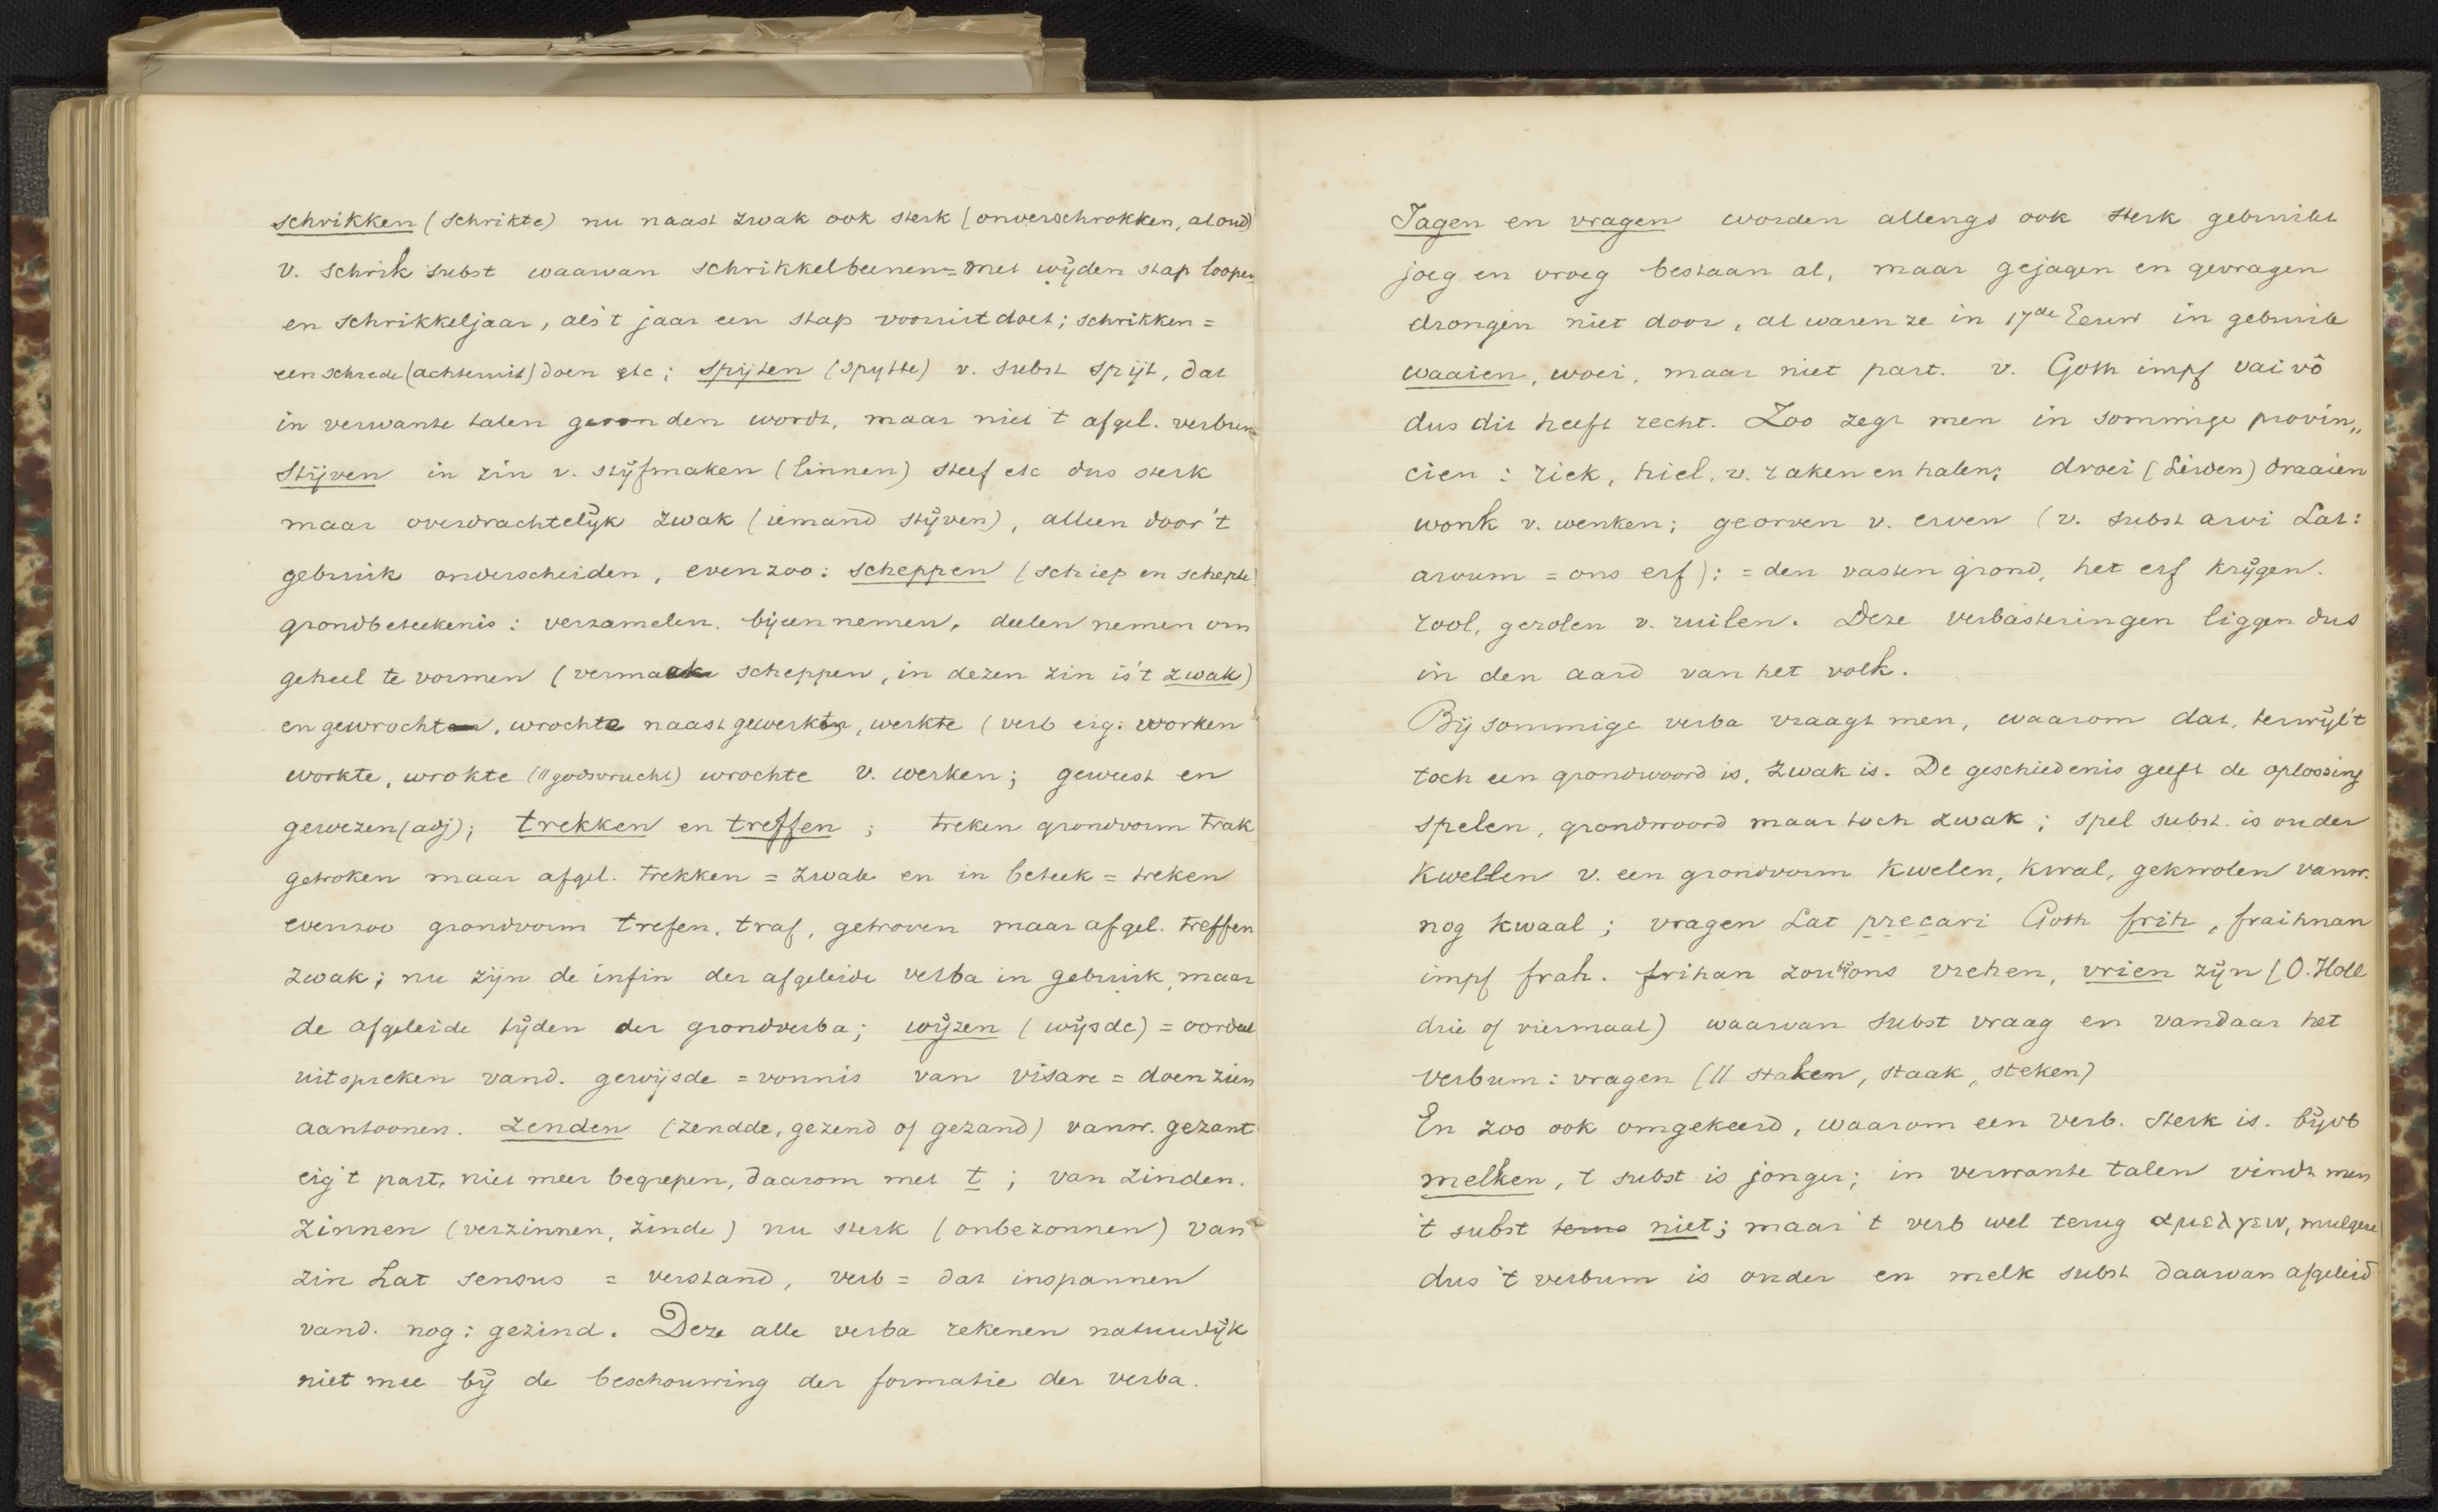 schrikken (schrikte) nu naast zwak ook sterk (onverschrokken, al oud)
v. schrik subst waarvan schrikkelbeenen = met wijden stap loopen
en schrikkeljaar, als 't jaar een stap vooruit doet; schrikken =
een schrede (achteruit) doen etc; spijten (spytte) v. subst spijt, dat
in verwante talen gevonden wordt, maar niet 't afgel. verbum
Stijven in zin v. stijfmaken (linnen) steef etc dus sterk
maar overdrachtelijk zwak (iemand stijven), alleen door 't
gebruik onderscheiden, evenzoo: scheppen (schiep en schepte)
grondbeteekenis: verzamelen. bijeennemen, deelen nemen om
geheel te vormen (vermaak scheppen, in dezen zin is 't zwak)
en gewrocht, wrochte naast gewerkt, werkte (verb eig: worken
workte, wrokte (|| godsvrucht) wrochte v. werken; geweest en
gewezen (adj); trekken en treffen; treken grondvorm trak
getroken maar afgel. trekken = zwak en in beteek = treken
evenzoo grondvorm trefen, traf, getroven maar afgel. treffen
zwak; nu zijn de infin der afgeleide verba in gebruik, maar
de afgeleide tijden der grondverba; wijzen (wijsde) = oordeel
uitspreken vand. gewijsde = vonnis van visare = doen zien
aantoonen. Zenden (zendde, gezend of gezand) vanw. gezant
eig 't part. niet meer begrepen, daarom met t; van zinden.
Zinnen (verzinnen, zinde) nu sterk (onbezonnen) van
zin Lat sensus = verstand, verb = dat inspannen
vand. nog: gezind. Deze alle verba rekenen natuurlijk
niet mee bij de beschouwing der formatie der verba.
Jagen en vragen worden allengs ook sterk gebruikt
joeg en vroeg bestaan al, maar gejagen en gevragen
drongen niet door, al waren ze in 17de Eeuw in gebruik
waaien, woei, maar niet part. v. Goth impf vaivô
dus dit heeft recht. Zoo zegt men in sommige provin„
cien: riek, hiel, v. raken en halen; droei (Leiden) draaien
wonk v. wenken; georven v. erven (v. subst arvi Lat:
arvum = ons erf): = den vasten grond, het erf krijgen.
rool, gerolen v. ruilen. Deze verbasteringen liggen dus
in den aard van het volk.
Bij sommige verba vraagt men, waarom dat, terwijl 't
toch een grondwoord is, zwak is. De geschiedenis geeft de oplossing
spelen, grondwoord maar toch zwak; spel subst. is ouder
Kwellen v. een grondvorm kwelen, kwal, gekwolen vanw.
nog kwaal; vragen Lat precari Goth frih, fraihnan
impf frah. frihan zou bij ons vrehen, vrien zijn (O. Holl
drie of viermaal) waarvan subst vraag en vandaar het
verbum: vragen (|| staken, staak, steken)
En zoo ook omgekeerd, waarom een verb. sterk is. bijvb
melken, 't subst is jonger; in verwante talen vindt men
't subst terug niet; maar 't verb wel terug αμελγειν, mulgere
dus 't verbum is ouder en melk subst daarvan afgeleid